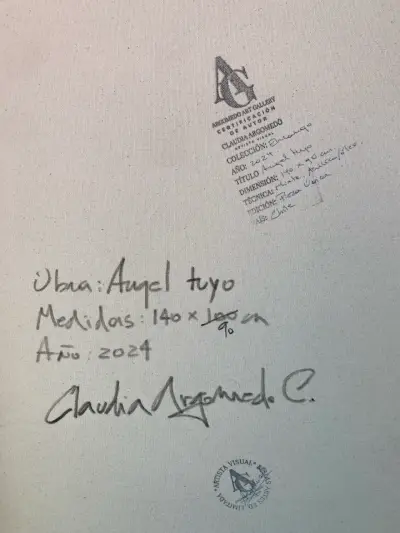 AG
ARGOMEDO ART GALLERY
CERTIFICACIÓN
DE AUTOR
CLAUDIA ARGOMEDO
ARTISTA VISUAL
COLECCIÓN: Encargo
AÑO: 2024
TÍTULO Angel tuyo
DIMENSIÓN: 140 x 90 cm
TÉCNICA: Mixta,
EDICIÓN: Pieza Única
PAÍS: Chile
Obra: Angel tuyo
Medidas: 140 x 100 cm
90
Año: 2024
Claudia Argomedo C.
ARTISTA VISUAL